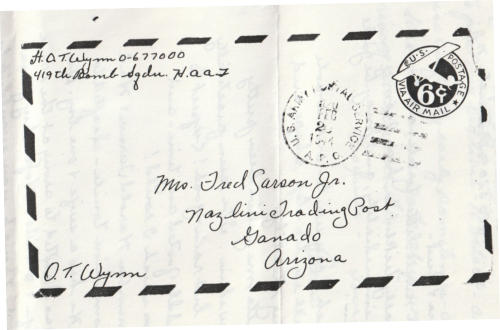 H.O.T. Wynn O-677000
419th Bomb Sqdn. H.A.A.F
U.S. POSTAGE
VIA AIR MAIL
6¢
U.S. ARMY POSTAL SERVICE
FEB
A.P.O.
Mrs. Fred Carson Jr.
Nazlini Trading Post.
Ganado
Arizona
O.T. Wynn